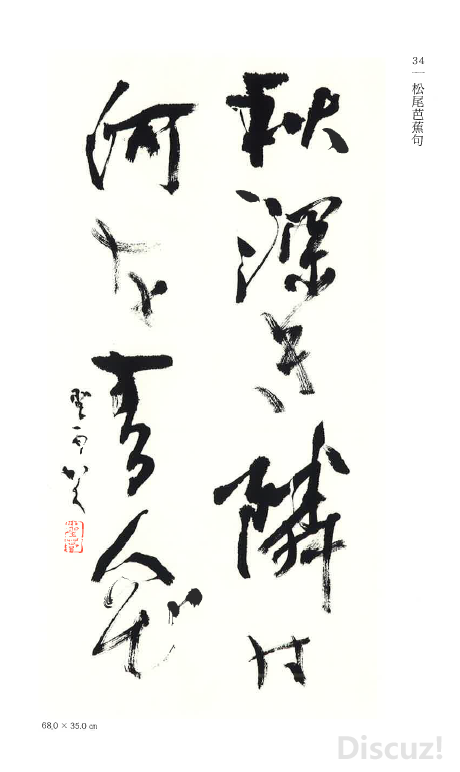 34
松尾芭蕉句
秋深き隣は
何をする人ぞ
68.0 × 35.0 ㎝
Discuz!